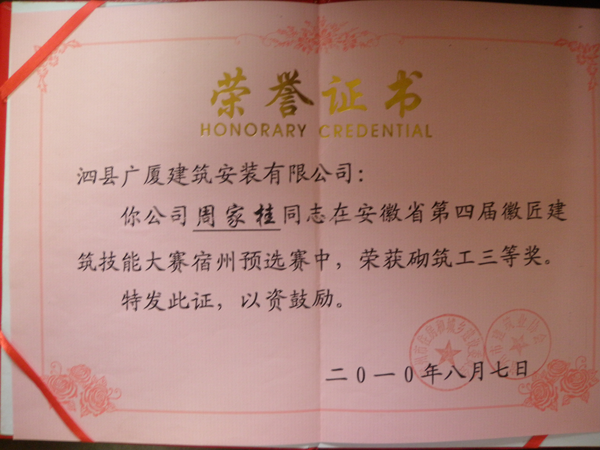 荣誉证书
HONORARY CREDENTIAL
泗县广厦建筑安装有限公司：
你公司周家桂同志在安徽省第四届徽匠建
筑技能大赛宿州预选赛中，荣获砌筑工三等奖。
特发此证，以资鼓励。
二〇一〇年八月七日